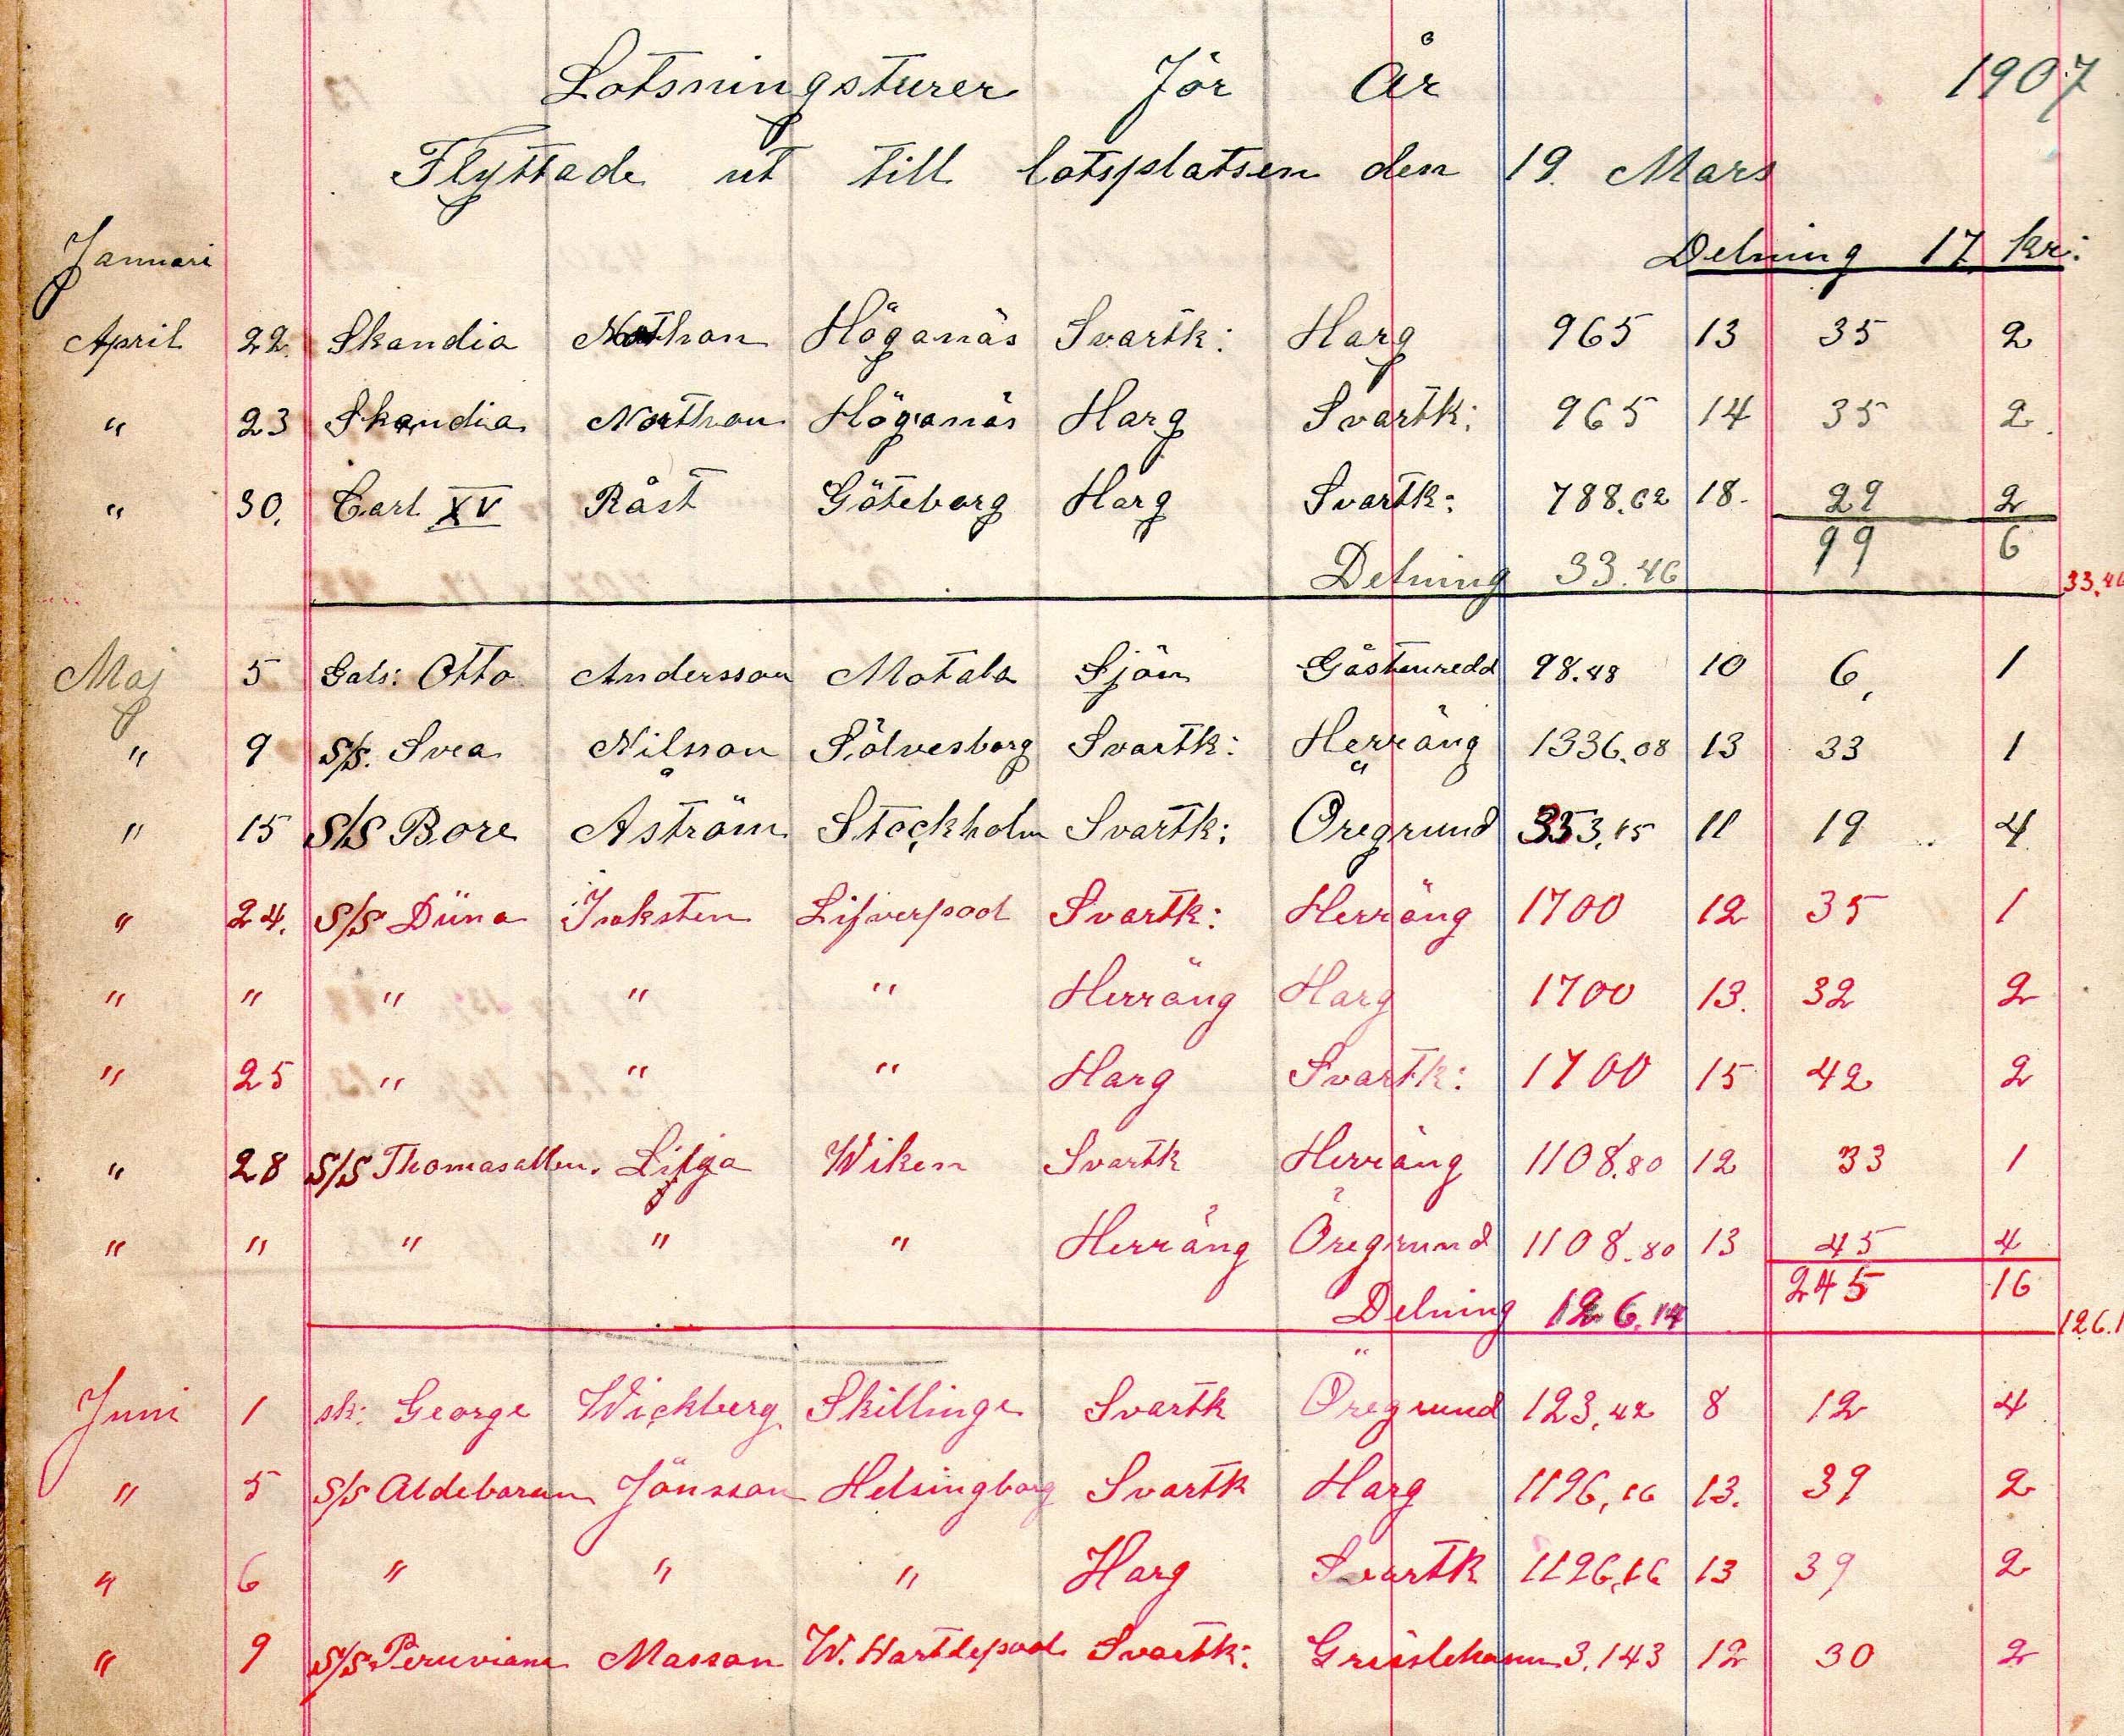 Lotsningsturer för År 1907
Flyttade ut till lotsplatsen den 19. Mars
Januari Delning 17 kr:
April 22. Skandia Nathan Höganäs Svartk: Harg 965 13 35 2
" 23 Skandia Nathan Höganäs Harg Svartk: 965 14 35 2.
" 30. Carl XV Råst Göteborg Harg Svartk: 788.62 18. 29 2
99 6
Delning 33.46 33.46
Maj 5 Gals: Otto Andersson Motala Sjön Gåstenredd 98.48 10 6, 1
" 9 s/s. Svea Nilsson Sölvesborg Svartk: Herräng 1336.08 13 33 1
" 15 S/S Bore Åström Stockholm Svartk: Öregrund 353,15 11 19 4
" 24. S/S Düna Isaksten Lifverpool Svartk: Herräng 1700 12 35 1
" " " " " Herräng Harg 1700 13. 32 2
" 25 " " " Harg Svartk: 1700 15 42 2
" 28 S/S Thomasallen. Lilja Wiken Svartk Herräng 1108.80 12 33 1
" " " " " Herräng Öregrund 1108.80 13 45 4
245 16
Delning 126.14 126.1
Juni 1 sk: George Wickberg Skillinge Svartk Öregrund 123,42 8 12 4
" 5 S/S Aldebaran Jönsson Helsingborg Svartk Harg 1196,16 13. 39 2
" 6 " " " Harg Svartk 1196,16 13 39 2
" 9 S/S Peruviana Masson W. Hartlepool Svartk: Grislehamn 3.143 12 30 2